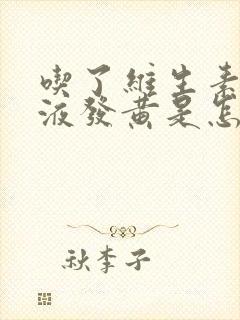 喫了維生素
液發黃是怎
秋李子